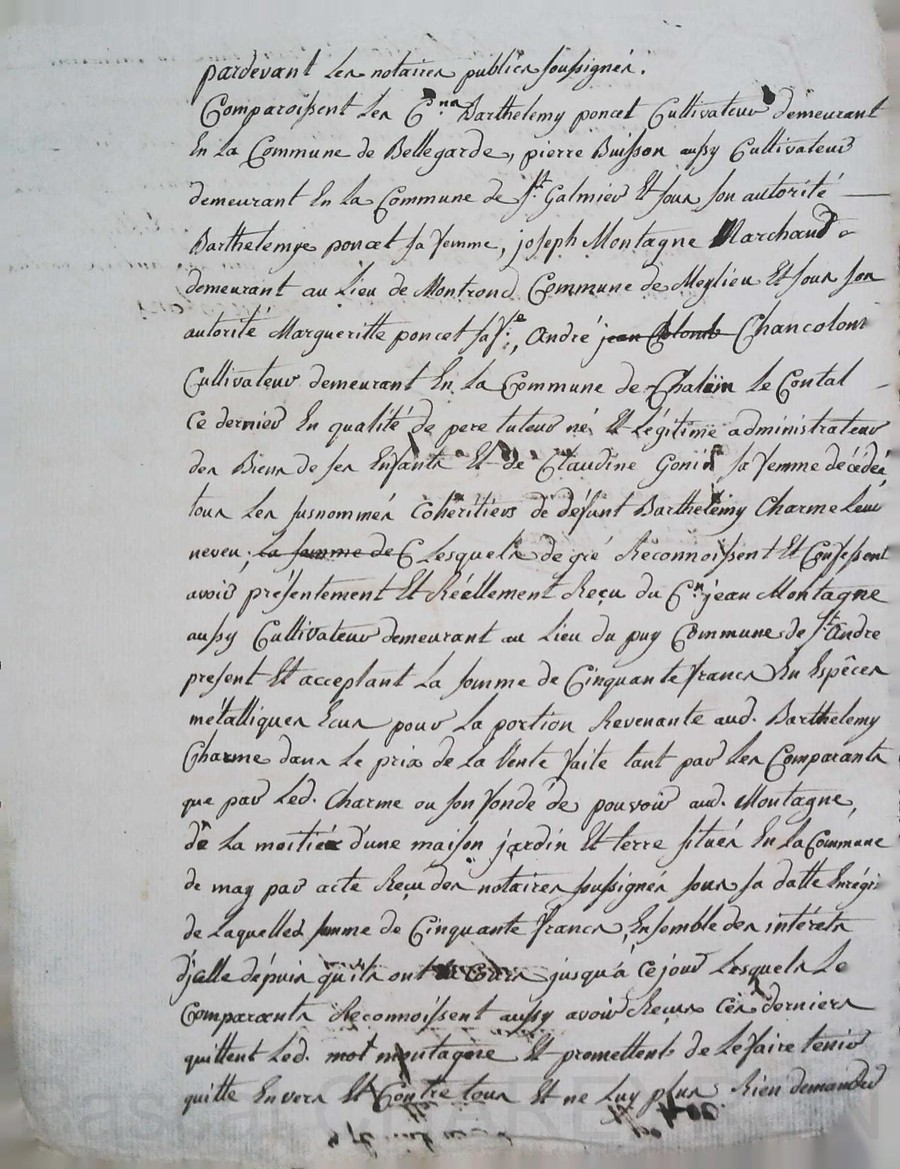 pardevant Les notaires publics soussignés.
Comparoissent Les C.ens Barthelemy poncet Cultivateur demeurant
En La Commune de Bellegarde, pierre Buisson aussy Cultivateur
demeurant En La Commune de St. Galmier Et sous son autorité
Barthelemye poncet sa femme, joseph Montagne Marchand
demeurant au Lieu de Montrond Commune de Meylieu Et sous son
autorité Margueritte poncet sa fe., André jean Colomb Chancolon
Cultivateur demeurant En La Commune de Chalain Le Contal
Ce dernier En qualité de pere tuteur né Et Légitime administrateur
des Biens de ses Enfants Et de Claudine Gonin sa femme décédée
tous Les susnommés Cohéritiers de défunt Barthelemy Charme Leur
neveu, La femme de C Lesquels de gré Reconnoissent Et Confessent
avoir présentement Et Réellement Reçu du C.en jean Montagne
aussy Cultivateur demeurant au Lieu du puy Commune de St. André
present Et acceptant La somme de Cinquante francs En Espêces
métalliques Ecus pour La portion Revenante aud. Barthelemy
Charme dans Le prix de La Vente faite tant par Les Comparants
que par Led. Charme ou son fondé de pouvoir aud. Montagne,
de La moitié d'une maison jardin Et terre situés En La Commune
de may par acte Reçu des notaires soussignés sous sa datte Enrégi
de Laquelle somme de Cinquante francs, Ensemble des intérêts
d'jcelle dépuis qu'ils ont Cours jusqu'á Cejour Lesquels Le
Comparants Reconnoissent aussy avoir Reçus Ces derniers
quittent Led. mot montagne Et promettent de Le faire tenir
quitte Envers Et Contre tous Et ne Luy plus Rien demander